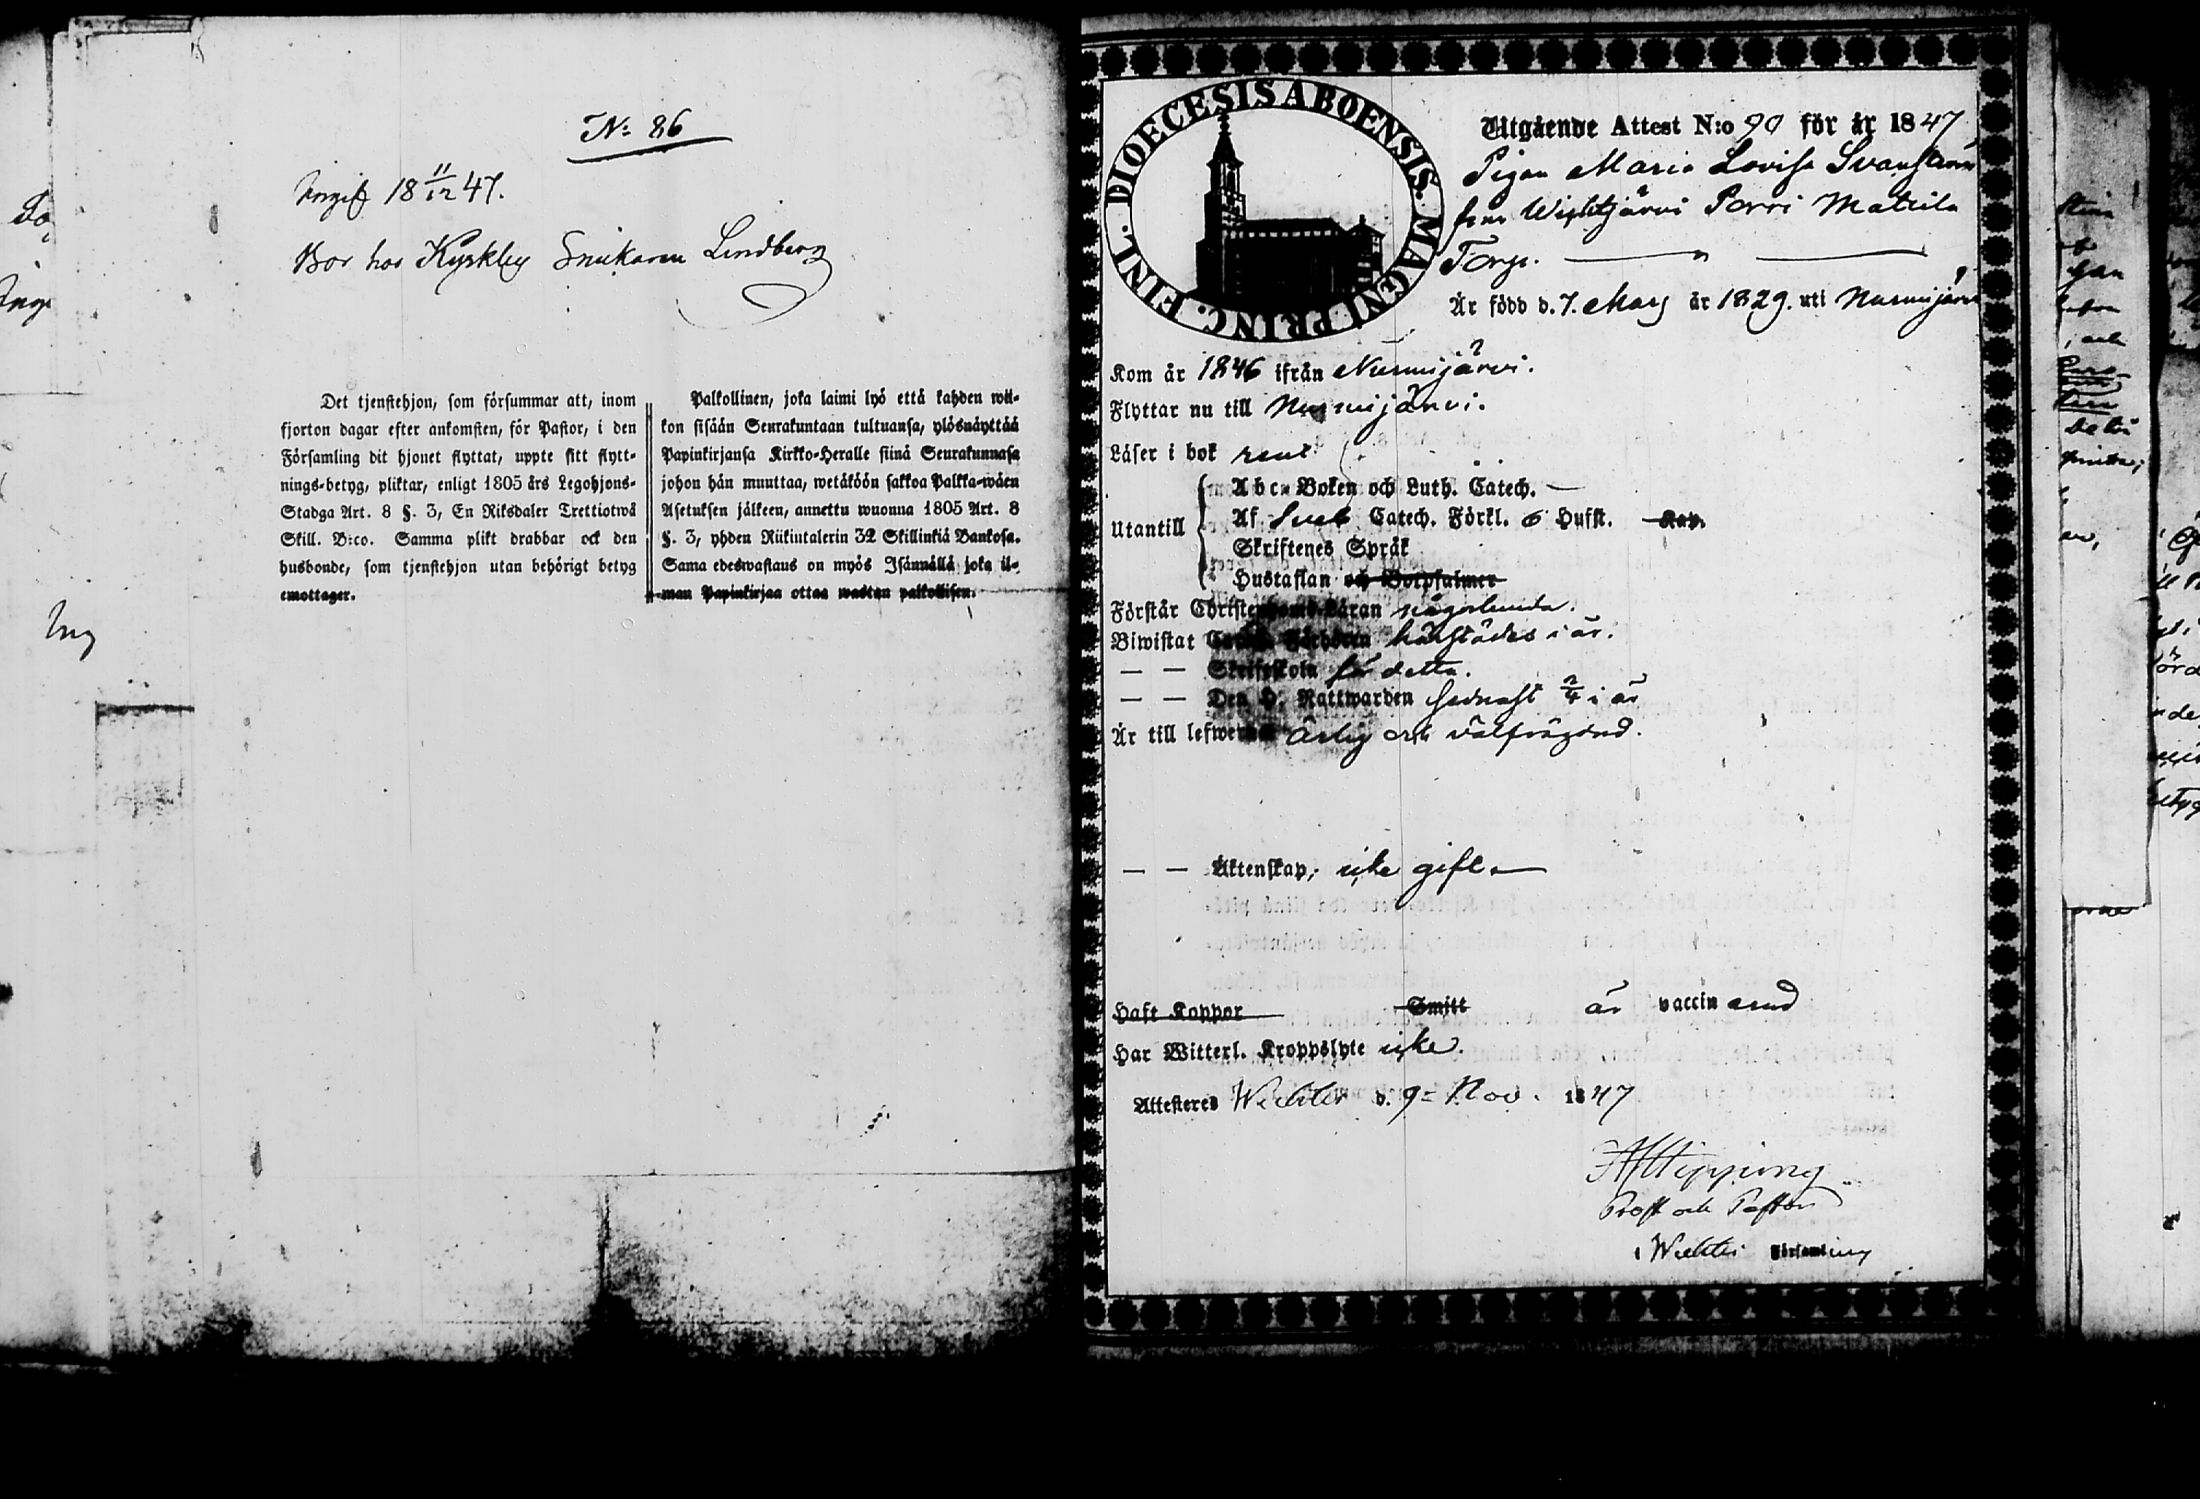 N: 86
18 11/12 47.
Bor hos Kyrkby Snickaren Lindberg
Det tjenstehjon, som försummar att, inom
fjorton dagar efter ankomsten, för Pastor, i den
Församling dit hjonet flyttat, uppte sitt flytt-
nings-betyg, pliktar, enligt 1805 års Legohjons-
Stadga Art. 8 §. 3, En Riksdaler Trettiotwå
Skill. B:co. Samma plikt drabbar ock den
husbonde, som tjenstehjon utan behörigt betyg
emottager.
Palkollinen, joka laimi lyö että kahden wii-
kon sisään Seurakuntaan tultuansa, ylösnäyttää
Papinkirjansa Kirkko-Heralle siinä Seurakunnasa
johon hän muuttaa, wetäköön sakkoa Palkka-wäen
Asetuksen jälkeen, annettu wuonna 1805 Art. 8
§. 3, yhden Riikintalerin 32 Skillinkiä Bankosa.
Sama edeswastaus on myös Isännällä joka il-
man Papinkirjaa ottaa wastan palkollisen.
DIOECESIS ABOENSIS. MAGNI PRINC. FINL.
Utgående Attest N:o 90 för år 1847
Pigan Maria Lovisa Svanström
från Wichtjärvi Porri Mattila
Torp.
Är född d. 7. Mars år 1829. uti Nurmijärvi
Kom år 1846 ifrån Nurmijärvi.
Flyttar nu till Nurmijärvi.
Läser i bok rent
Utantill
Abc-Boken och Luth. Catech. —
Af Sveb Catech. Förkl. 6 Hufst. Kap.
Skriftenes Språk
Hustaflan och Botpsalmer
Förstår Christendoms-Läran någorlunda.
Biwistat Catech. Förhören härstädes i år.
— — Skriftskola för detta.
— — Den H. Nattwarden sednast 2/4 i år
Är till lefwernet ärlig och välfrägdad.
— — Äktenskap, icke gift. —
Haft Koppor Smitt är vaccinerad
Har Witterl. Kroppslyte icke.
Attesteres Wichtis d. 9 Nov. 1847
Hipping
Prost och Pastor
i Wichtis Församling